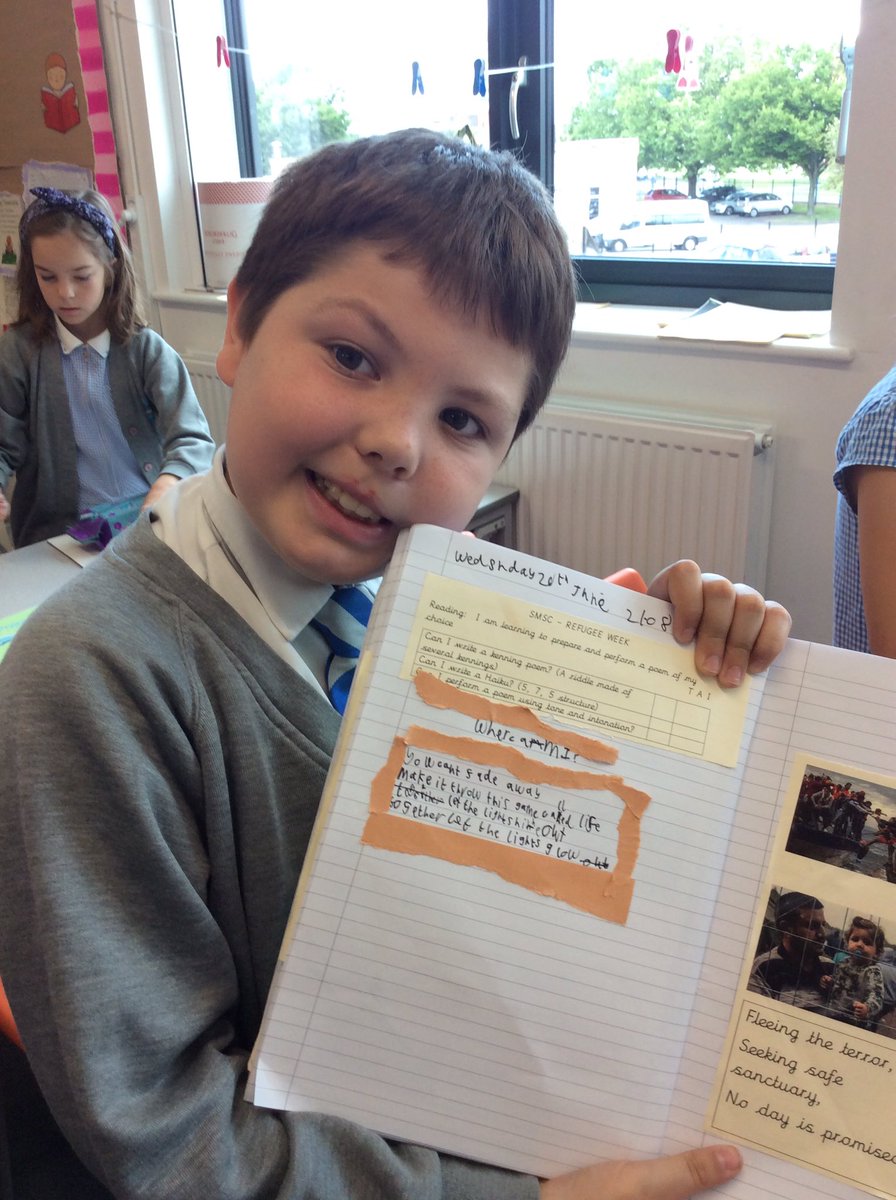 Wedsnday 20th June 2108
SMSC - REFUGEE WEEK
Reading: I am learning to prepare and perform a poem of my
choice
T A I
Can I write a kenning poem? (A riddle made of
several kennings)
Can I write a Haiku? (5, 7, 5 structure)
I perform a poem using tone and intonation?
Where aMI?
You cant fade away
Make it throw this game called life
let the light shine out
together let the lights glow out
Fleeing the terror,
Seeking safe
sanctuary,
No day is promised